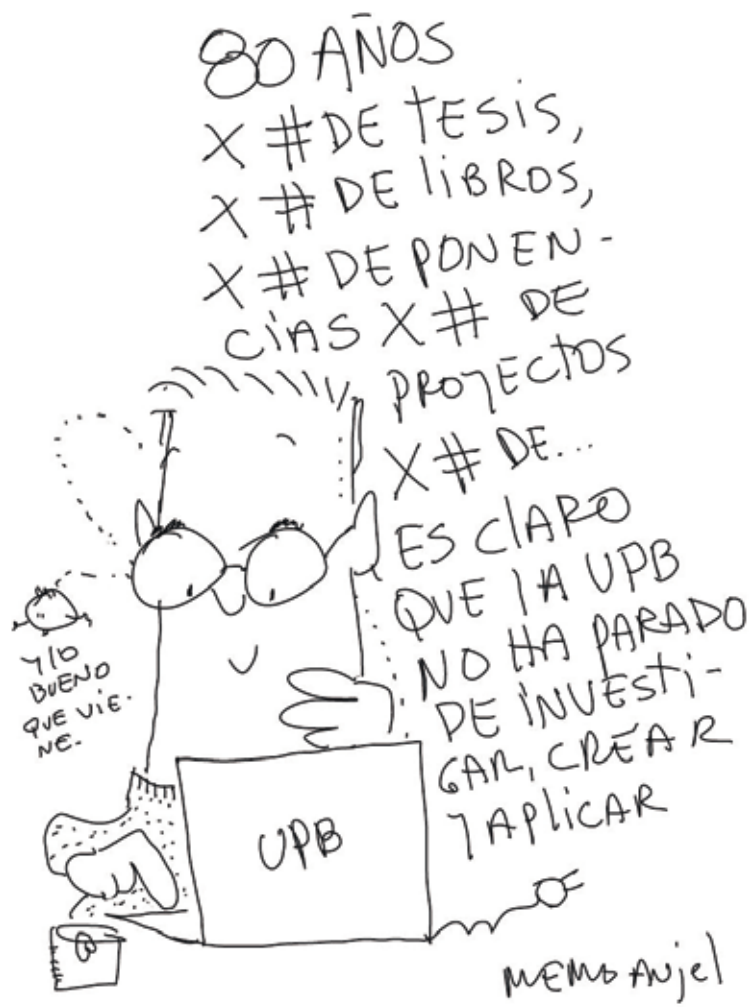 80 AÑOS
X # DE TESIS,
X # DE LIBROS,
X # DE PONEN-
CIAS X # DE
PROYECTOS
X # DE...
ES CLARO
QUE LA UPB
NO HA PARADO
DE INVESTI-
GAR, CREAR
Y APLICAR
Y LO
BUENO
QUE VIE-
NE.
UPB
MEMO ANJEL